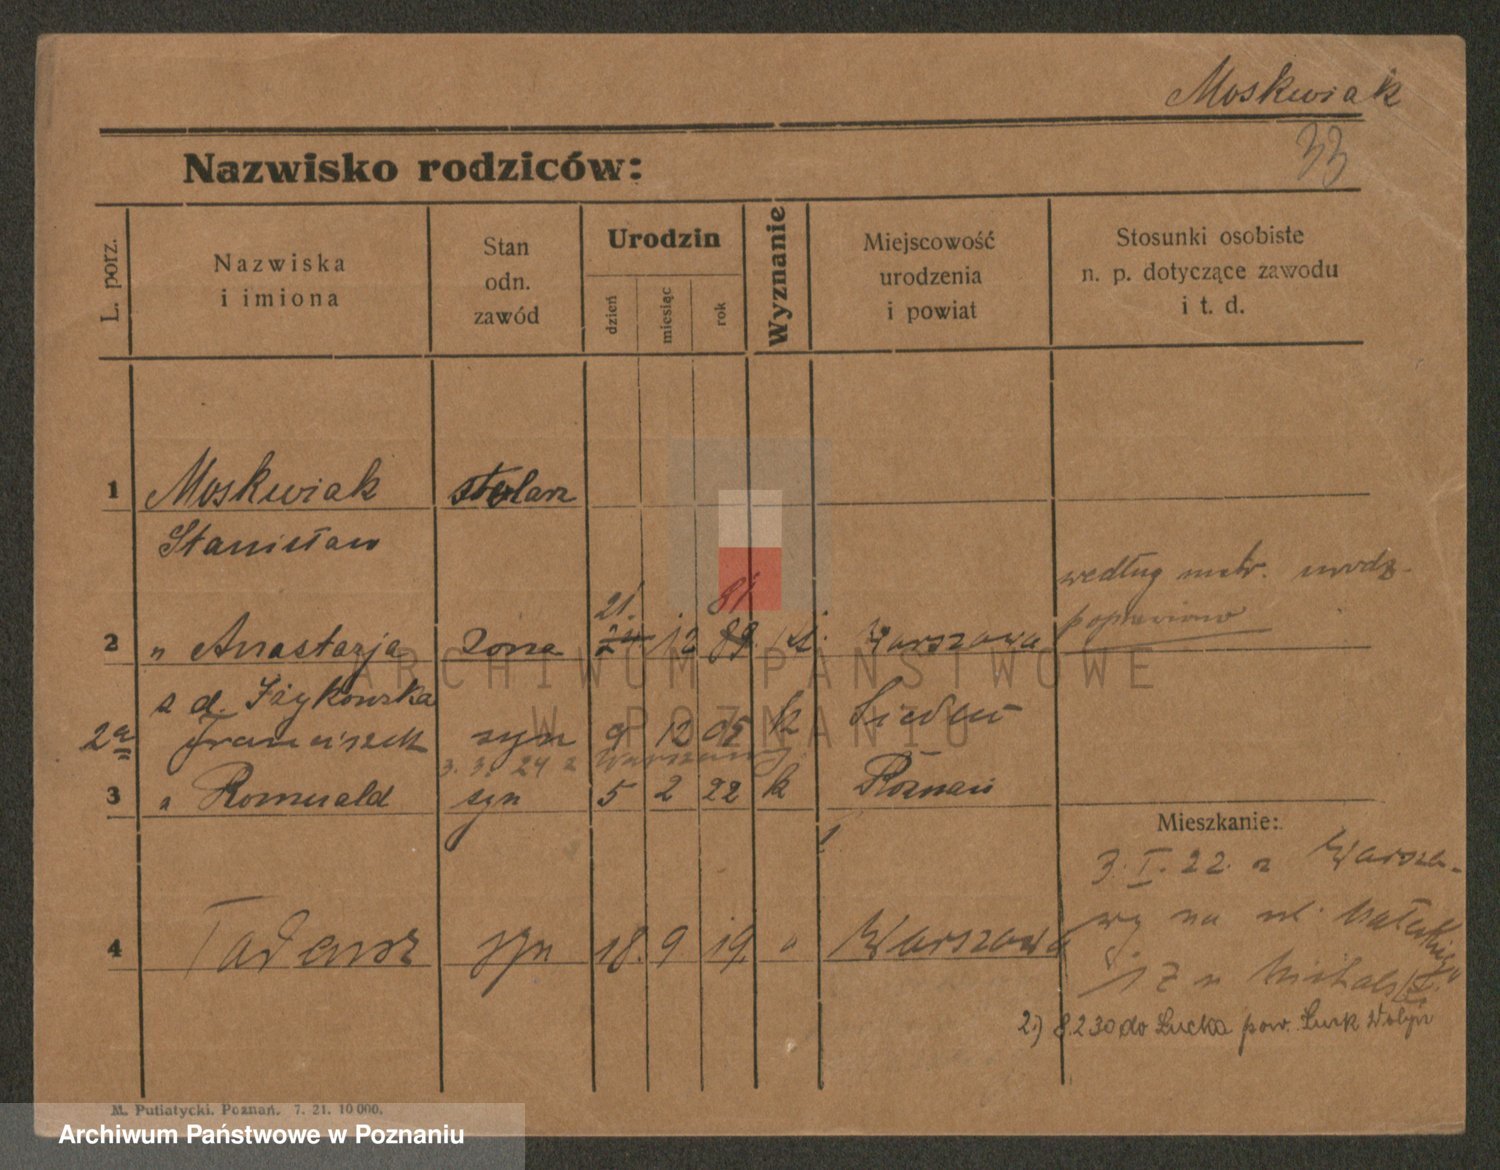 Moskwiak
33
Nazwisko rodziców:
L. porz.
Nazwiska
i imiona
Stan
odn.
zawód
Urodzin
dzień
miesiąc
rok
Wyznanie
Miejscowość
urodzenia
i powiat
Stosunki osobiste
n. p. dotyczące zawodu
i t. d.
1 Moskwiak stolarz
Stanisław
według metr. urodz.
poprawiono
21. 81
2 " Anastazja żona 24 12 89. kt. Warszawa
z d. Izykowska
2a Franciszek syn 9 12 05 k Siedlce
3. 3. 24 z Warszawy
3 " Romuald syn 5 2 22 k Poznań
Mieszkanie:
3. I. 22. z Warsza-
wy na ul.
4 Tadeusz syn 18. 9 19. " Warszawa
17 u
2.) 8.2.30 do Łucka pow. Łuck Wołyń
M. Putiatycki. Poznań. 7. 21. 10 000.
ARCHIWUM PAŃSTWOWE
W POZNANIU
Archiwum Państwowe w Poznaniu